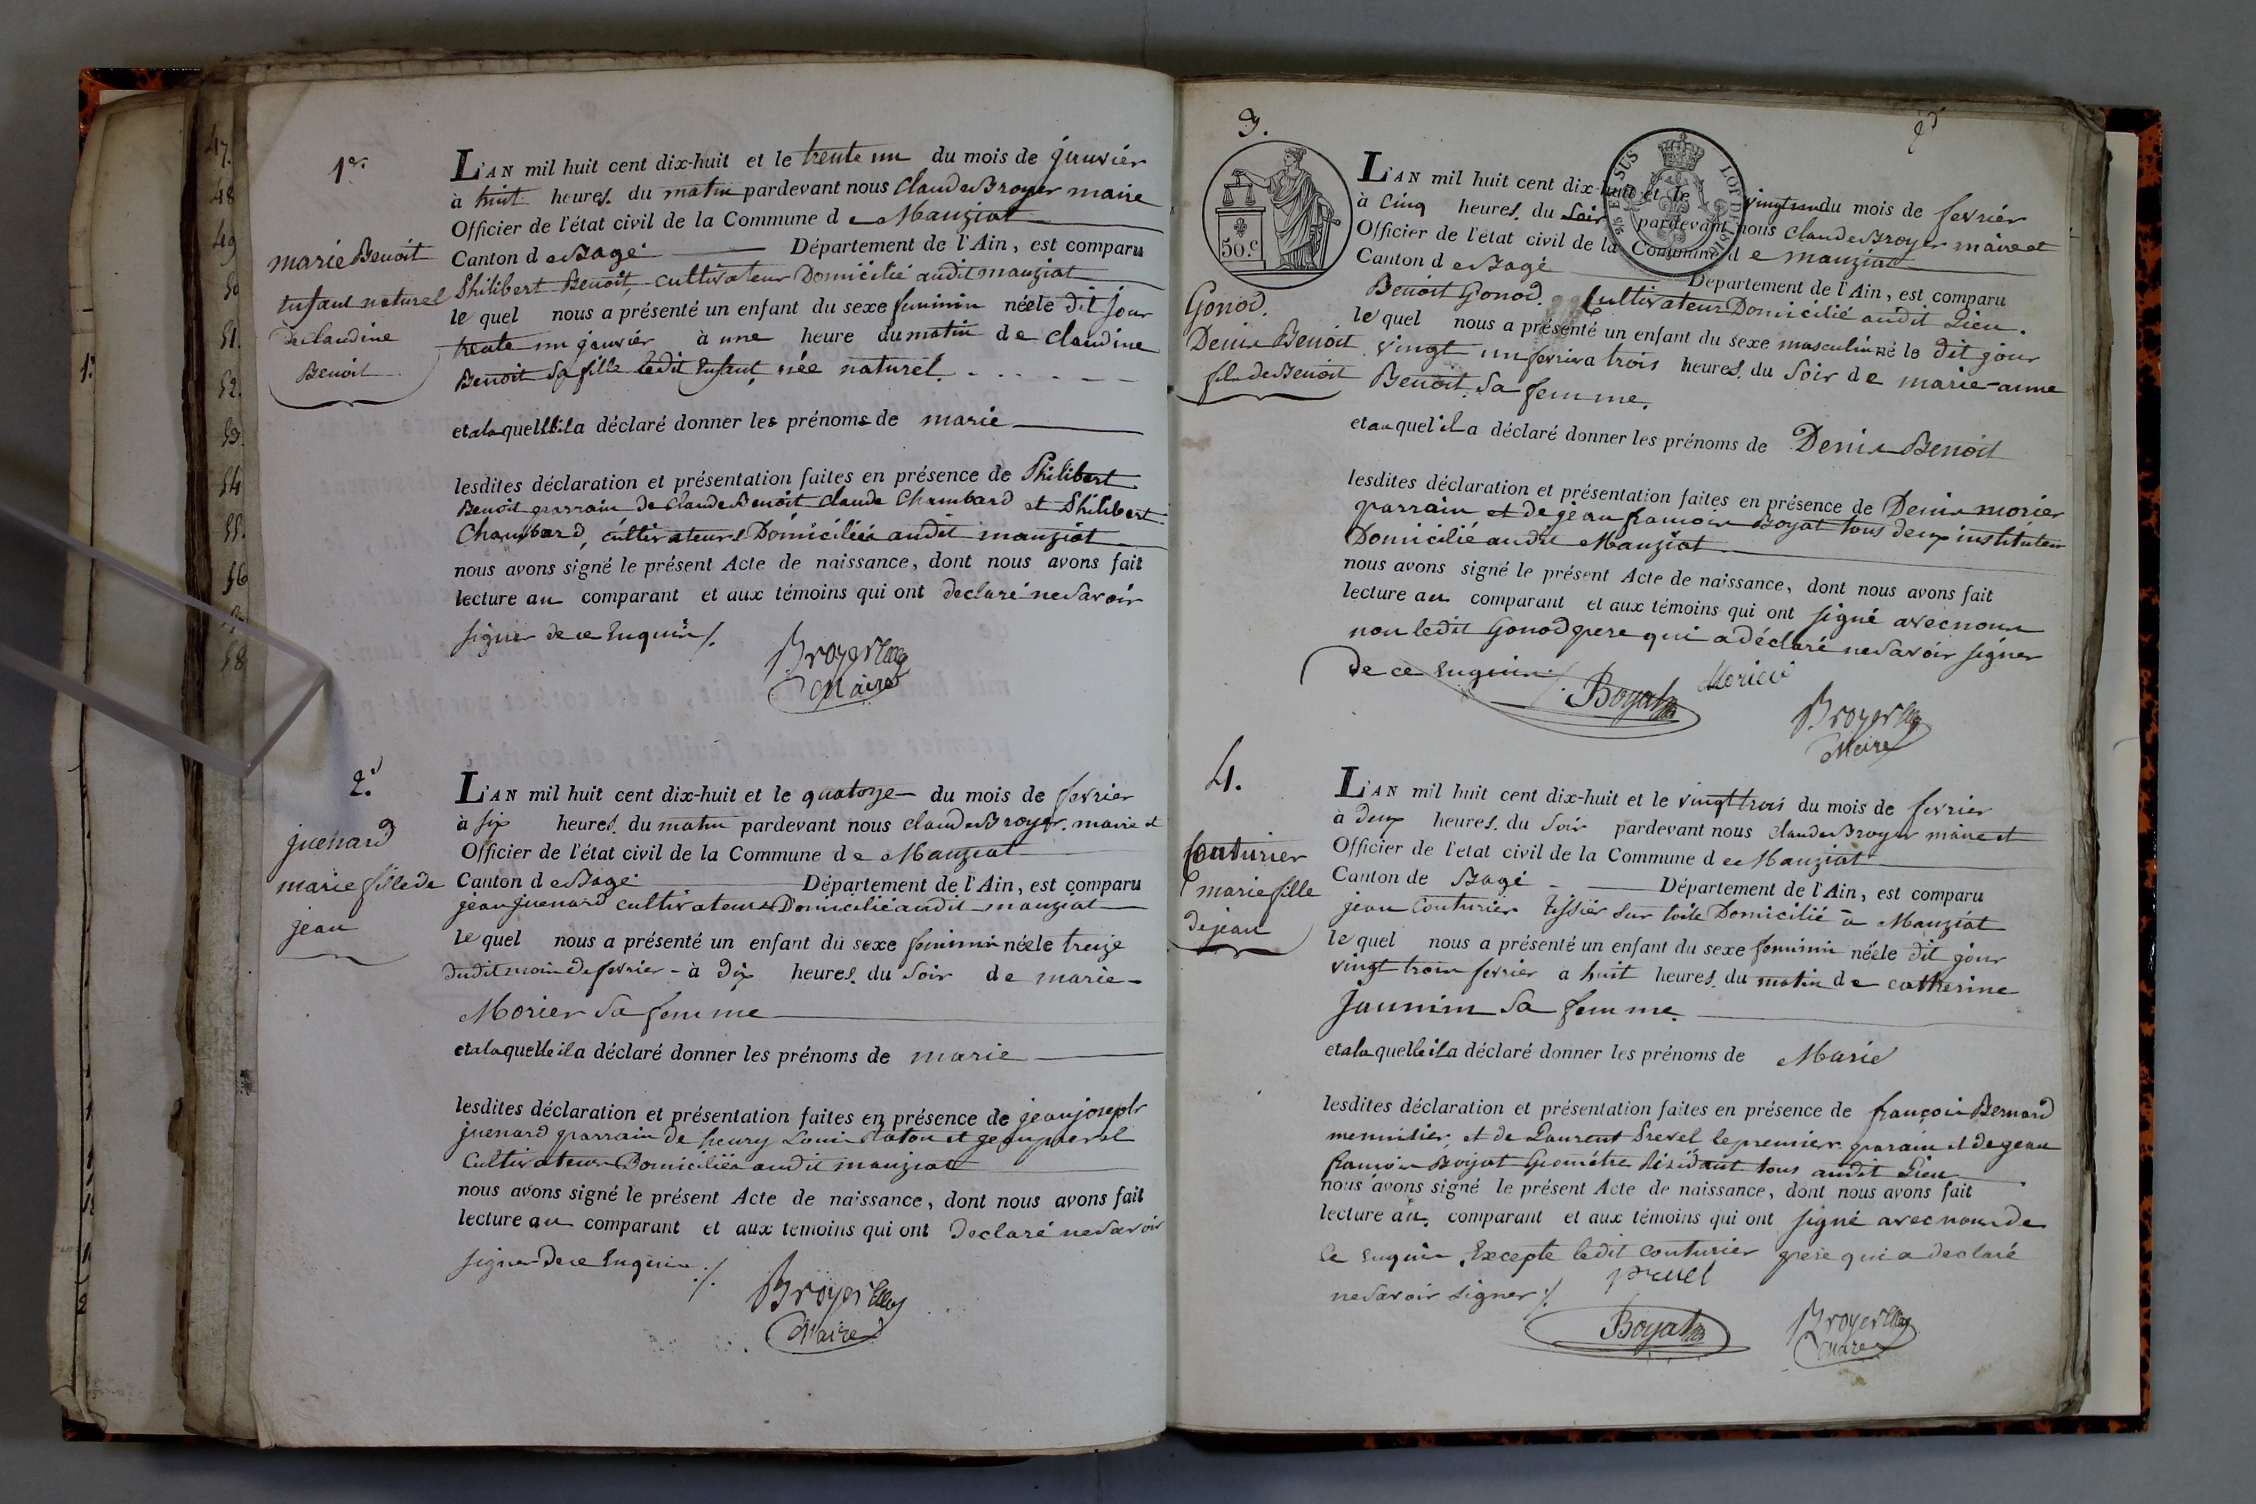 47.
48
49
50
51.
52.
53.
54
55.
56
58
1er
marie Benoit
Enfant naturel
de Claudine
Benoit
L'AN mil huit cent dix-huit et le trente un du mois de janvier
à huit heures du matin pardevant nous Claude Broyer maire
Officier de l'état civil de la Commune de Manziat
Canton de Bagé Département de l'Ain, est comparu
Philibert Benoit, cultivateur Domicilié audit manziat
le quel nous a présenté un enfant du sexe feminin née le dit jour
trente un janvier à une heure du matin de claudine
Benoit sa fille ledit Enfant née naturel.
et a laquelle il a déclaré donner les prénoms de marie
lesdites déclaration et présentation faites en présence de Philibert
Benoit parrain de Claude Benoit Claude Chambard et Philibert
Chambard, cultivateurs Domiciliés audit manziat
nous avons signé le présent Acte de naissance, dont nous avons fait
lecture au comparant et aux témoins qui ont declaré ne savoir
signer de ce Enquis ./.
Broyer
Maire
2.d
juenard
marie fille de
jean
L'AN mil huit cent dix-huit et le quatorze du mois de fevrier
à six heures du matin pardevant nous claude Broyer maire et
Officier de l'état civil de la Commune de Manziat
Canton de Bagé Département de l'Ain, est comparu
jean juenard cultivateur Domicilié audit manziat
le quel nous a présenté un enfant du sexe feminin née le treize
dudit mois de fevrier à dix heures du soir de marie
Morier sa femme
et a laquelle il a déclaré donner les prénoms de marie
lesdites déclaration et présentation faites en présence de jean joseph
juenard parrain de heury Louis et jean
Cultivateurs Domiciliés audit manziat
nous avons signé le présent Acte de naissance, dont nous avons fait
lecture au comparant et aux temoins qui ont declaré ne savoir
signer de ce Enquis ./.
Broyer
Maire
3.
2d
50.c
Gonod.
Denis Benoit
fils de Benoit
L'AN mil huit cent dix-huit et le vingt un du mois de fevrier
à Cinq heures du Soir pardevant nous claude Broyer maire et
Officier de l'état civil de la Commune de manziat
Canton de Bagé Département de l'Ain, est comparu
Benoit Gonod. Cultivateur Domicilié audit Lieu.
le quel nous a présenté un enfant du sexe masculin né le dit jour
vingt un fevrier a trois heures du Soir de marie-anne
Benoit. sa femme.
et au quel il a déclaré donner les prénoms de Denis Benoit
lesdites déclaration et présentation faites en présence de Denis morier
parrain et de jean francois Boyat tous deux instituteur
Domicilié audit Manziat
nous avons signé le présent Acte de naissance, dont nous avons fait
lecture au comparant et aux témoins qui ont signé avec nous
non ledit Gonod pere qui a déclaré ne savoir signer
de ce Enquis ./.
Boyat Morier
Broyer
Maire
4.
Couturier
marie fille
de jean
L'AN mil huit cent dix-huit et le vingt trois du mois de fevrier
à deux heures du Soir pardevant nous claude Broyer maire et
Officier de l'etat civil de la Commune de Manziat
Canton de Bagé Département de l'Ain, est comparu
jean Couturier tissier sur toile Domicilié à Manziat
le quel nous a présenté un enfant du sexe feminin née le dit jour
vingt trois fevrier a huit heures du matin de catherine
Jaunin sa femme.
et a laquelle il a déclaré donner les prénoms de Marie
lesdites déclaration et présentation faites en présence de françois Bernard
menuisier, et de Laurent Prevel le premier parain et de jean
francois Boyat Geométre Résidant tous audit Lieu
nous avons signé le présent Acte de naissance, dont nous avons fait
lecture au comparant et aux témoins qui ont signé avec nous de
ce Enquis Excepte ledit couturier pere qui a declaré
ne savoir signer ./.
Prevel
Boyat
Broyer
Maire